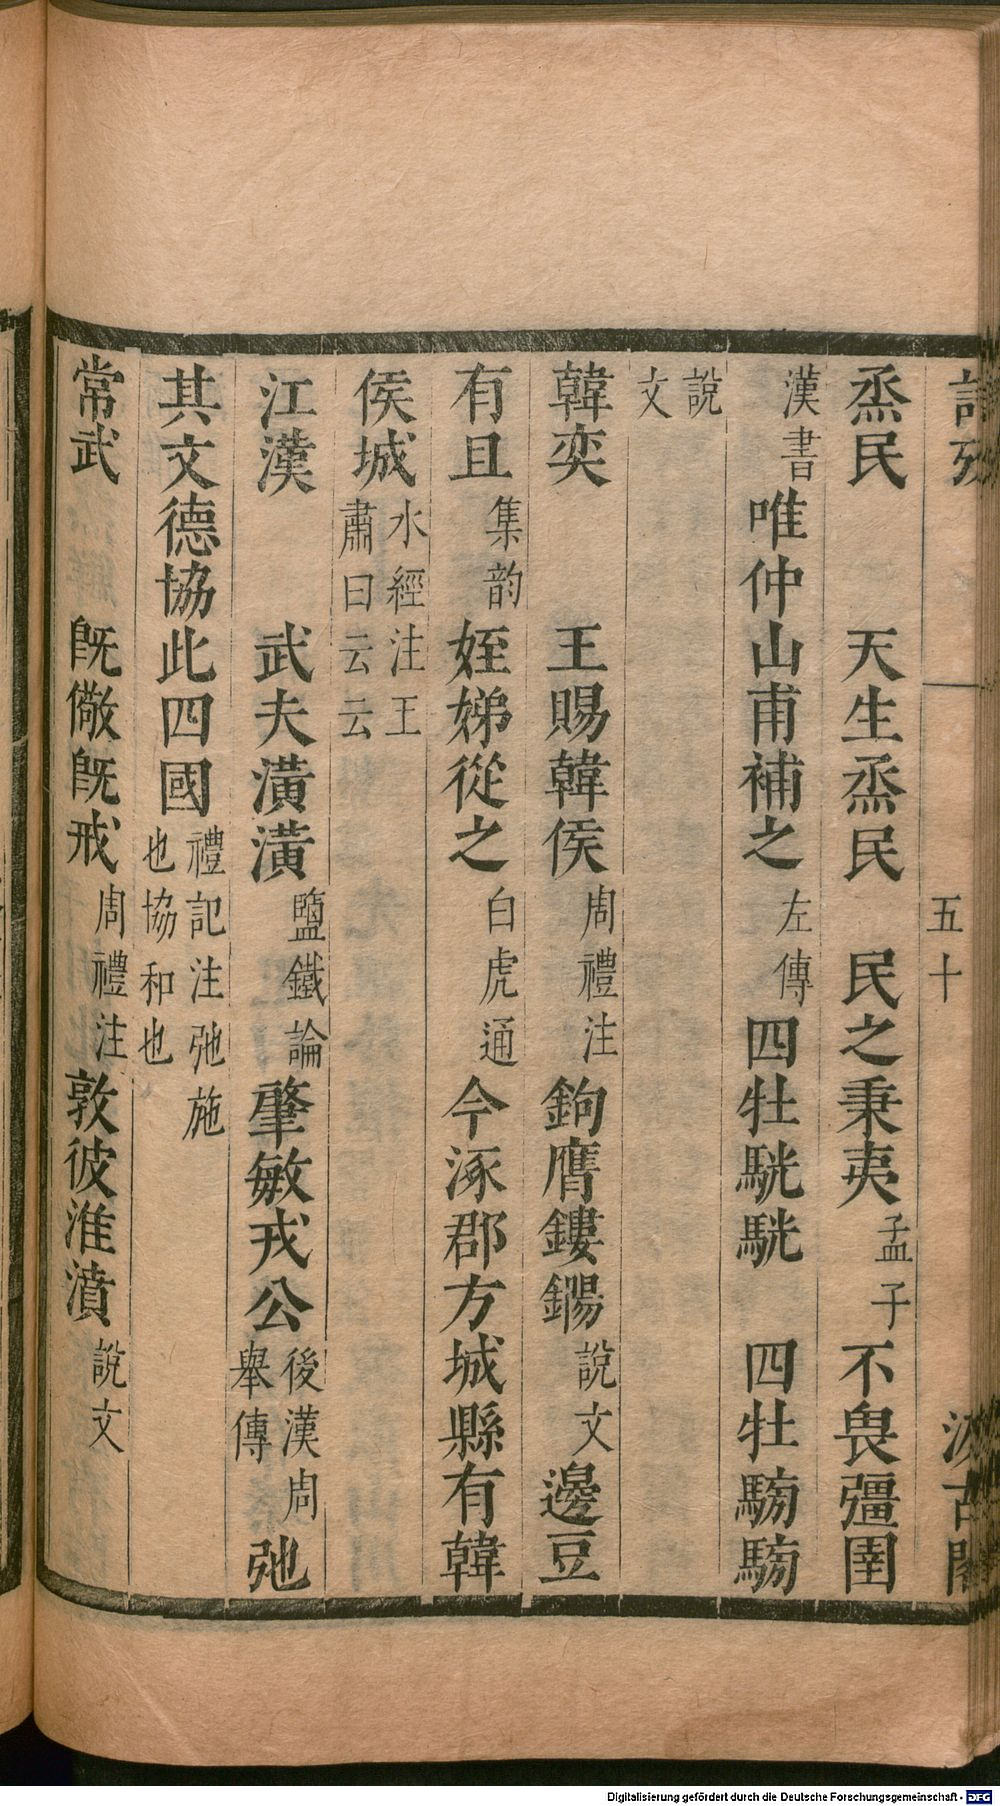 詩攷 五十 汲古閣
烝民 天生烝民 民之秉夷 孟子 不畏彊圉
漢書 唯仲山甫補之 左傳 四牡駫駫 四牡騯騯
說文
韓奕 王賜韓侯 周禮注 鉤膺鏤鐊 說文 邊豆
有且 集韵 姪娣從之 白虎通 今涿郡方城縣有韓
侯城 水經注王肅曰云云
江漢 武夫潢潢 鹽鐵論 肇敏戎公 後漢周舉傳 弛
其文德協此四國 禮記注弛施也協和也
常武 既儆既戒 周禮注 敦彼淮濆 說文
Digitalisierung gefördert durch die Deutsche Forschungsgemeinschaft - DFG